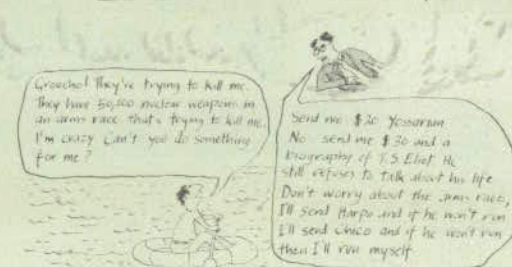 Groucho! They're trying to kill me.
They have 50,000 nuclear weapons in
an arms race that's trying to kill me.
I'm crazy Can't you do something
for me?
Send me $20 Yossarian
No send me $30 and a
biography of T.S. Eliot He
still refuses to talk about his life
Don't worry about the arms race,
I'll send Harpo and if he won't run
I'll send Chico and if he won't run
then I'll run myself